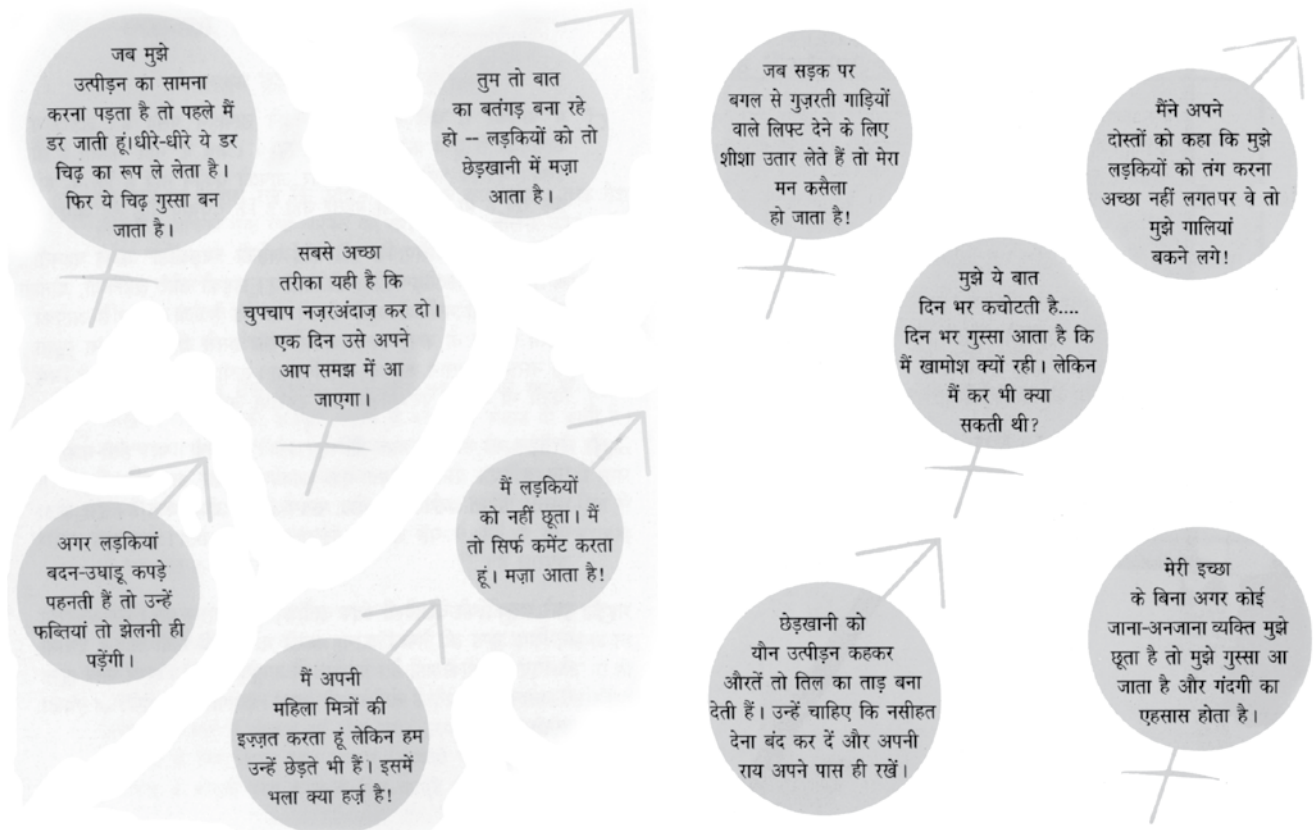 जब मुझे
उत्पीड़न का सामना
करना पड़ता है तो पहले मैं
डर जाती हूं।धीरे-धीरे ये डर
चिढ़ का रूप ले लेता है।
फिर ये चिढ़ गुस्सा बन
जाता है।
तुम तो बात
का बतंगड़ बना रहे
हो -- लड़कियों को तो
छेड़खानी में मज़ा
आता है।
सबसे अच्छा
तरीका यही है कि
चुपचाप नज़रअंदाज़ कर दो।
एक दिन उसे अपने
आप समझ में आ
जाएगा।
मैं लड़कियों
को नहीं छूता। मैं
तो सिर्फ कमेंट करता
हूं। मज़ा आता है!
अगर लड़कियां
बदन-उघाडू कपड़े
पहनती हैं तो उन्हें
फब्तियां तो झेलनी ही
पड़ेंगी।
मैं अपनी
महिला मित्रों की
इज़्ज़त करता हूं लेकिन हम
उन्हें छेड़ते भी हैं। इसमें
भला क्या हर्ज़ है!
जब सड़क पर
बगल से गुज़रती गाड़ियों
वाले लिफ्ट देने के लिए
शीशा उतार लेते हैं तो मेरा
मन कसैला
हो जाता है!
मैंने अपने
दोस्तों को कहा कि मुझे
लड़कियों को तंग करना
अच्छा नहीं लगतपर वे तो
मुझे गालियां
बकने लगे!
मुझे ये बात
दिन भर कचोटती है....
दिन भर गुस्सा आता है कि
मैं खामोश क्यों रही। लेकिन
मैं कर भी क्या
सकती थी?
छेड़खानी को
यौन उत्पीड़न कहकर
औरतें तो तिल का ताड़ बना
देती हैं। उन्हें चाहिए कि नसीहत
देना बंद कर दें और अपनी
राय अपने पास ही रखें।
मेरी इच्छा
के बिना अगर कोई
जाना-अनजाना व्यक्ति मुझे
छूता है तो मुझे गुस्सा आ
जाता है और गंदगी का
एहसास होता है।